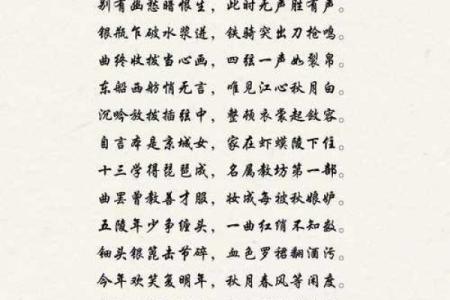 别有幽愁暗恨生，此时无声胜有声。
银瓶乍破水浆迸，铁骑突出刀枪鸣。
曲终收拨当心画，四弦一声如裂帛。
东船西舫悄无言，唯见江心秋月白。
沉吟放拨插弦中，整顿衣裳起敛容。
自言本是京城女，家在虾蟆陵下住。
十三学得琵琶成，名属教坊第一部。
曲罢曾教善才服，妆成每被秋娘妒。
五陵年少争缠头，一曲红绡不知数。
钿头银篦击节碎，血色罗裙翻酒污。
今年欢笑复明年，秋月春风等闲度。